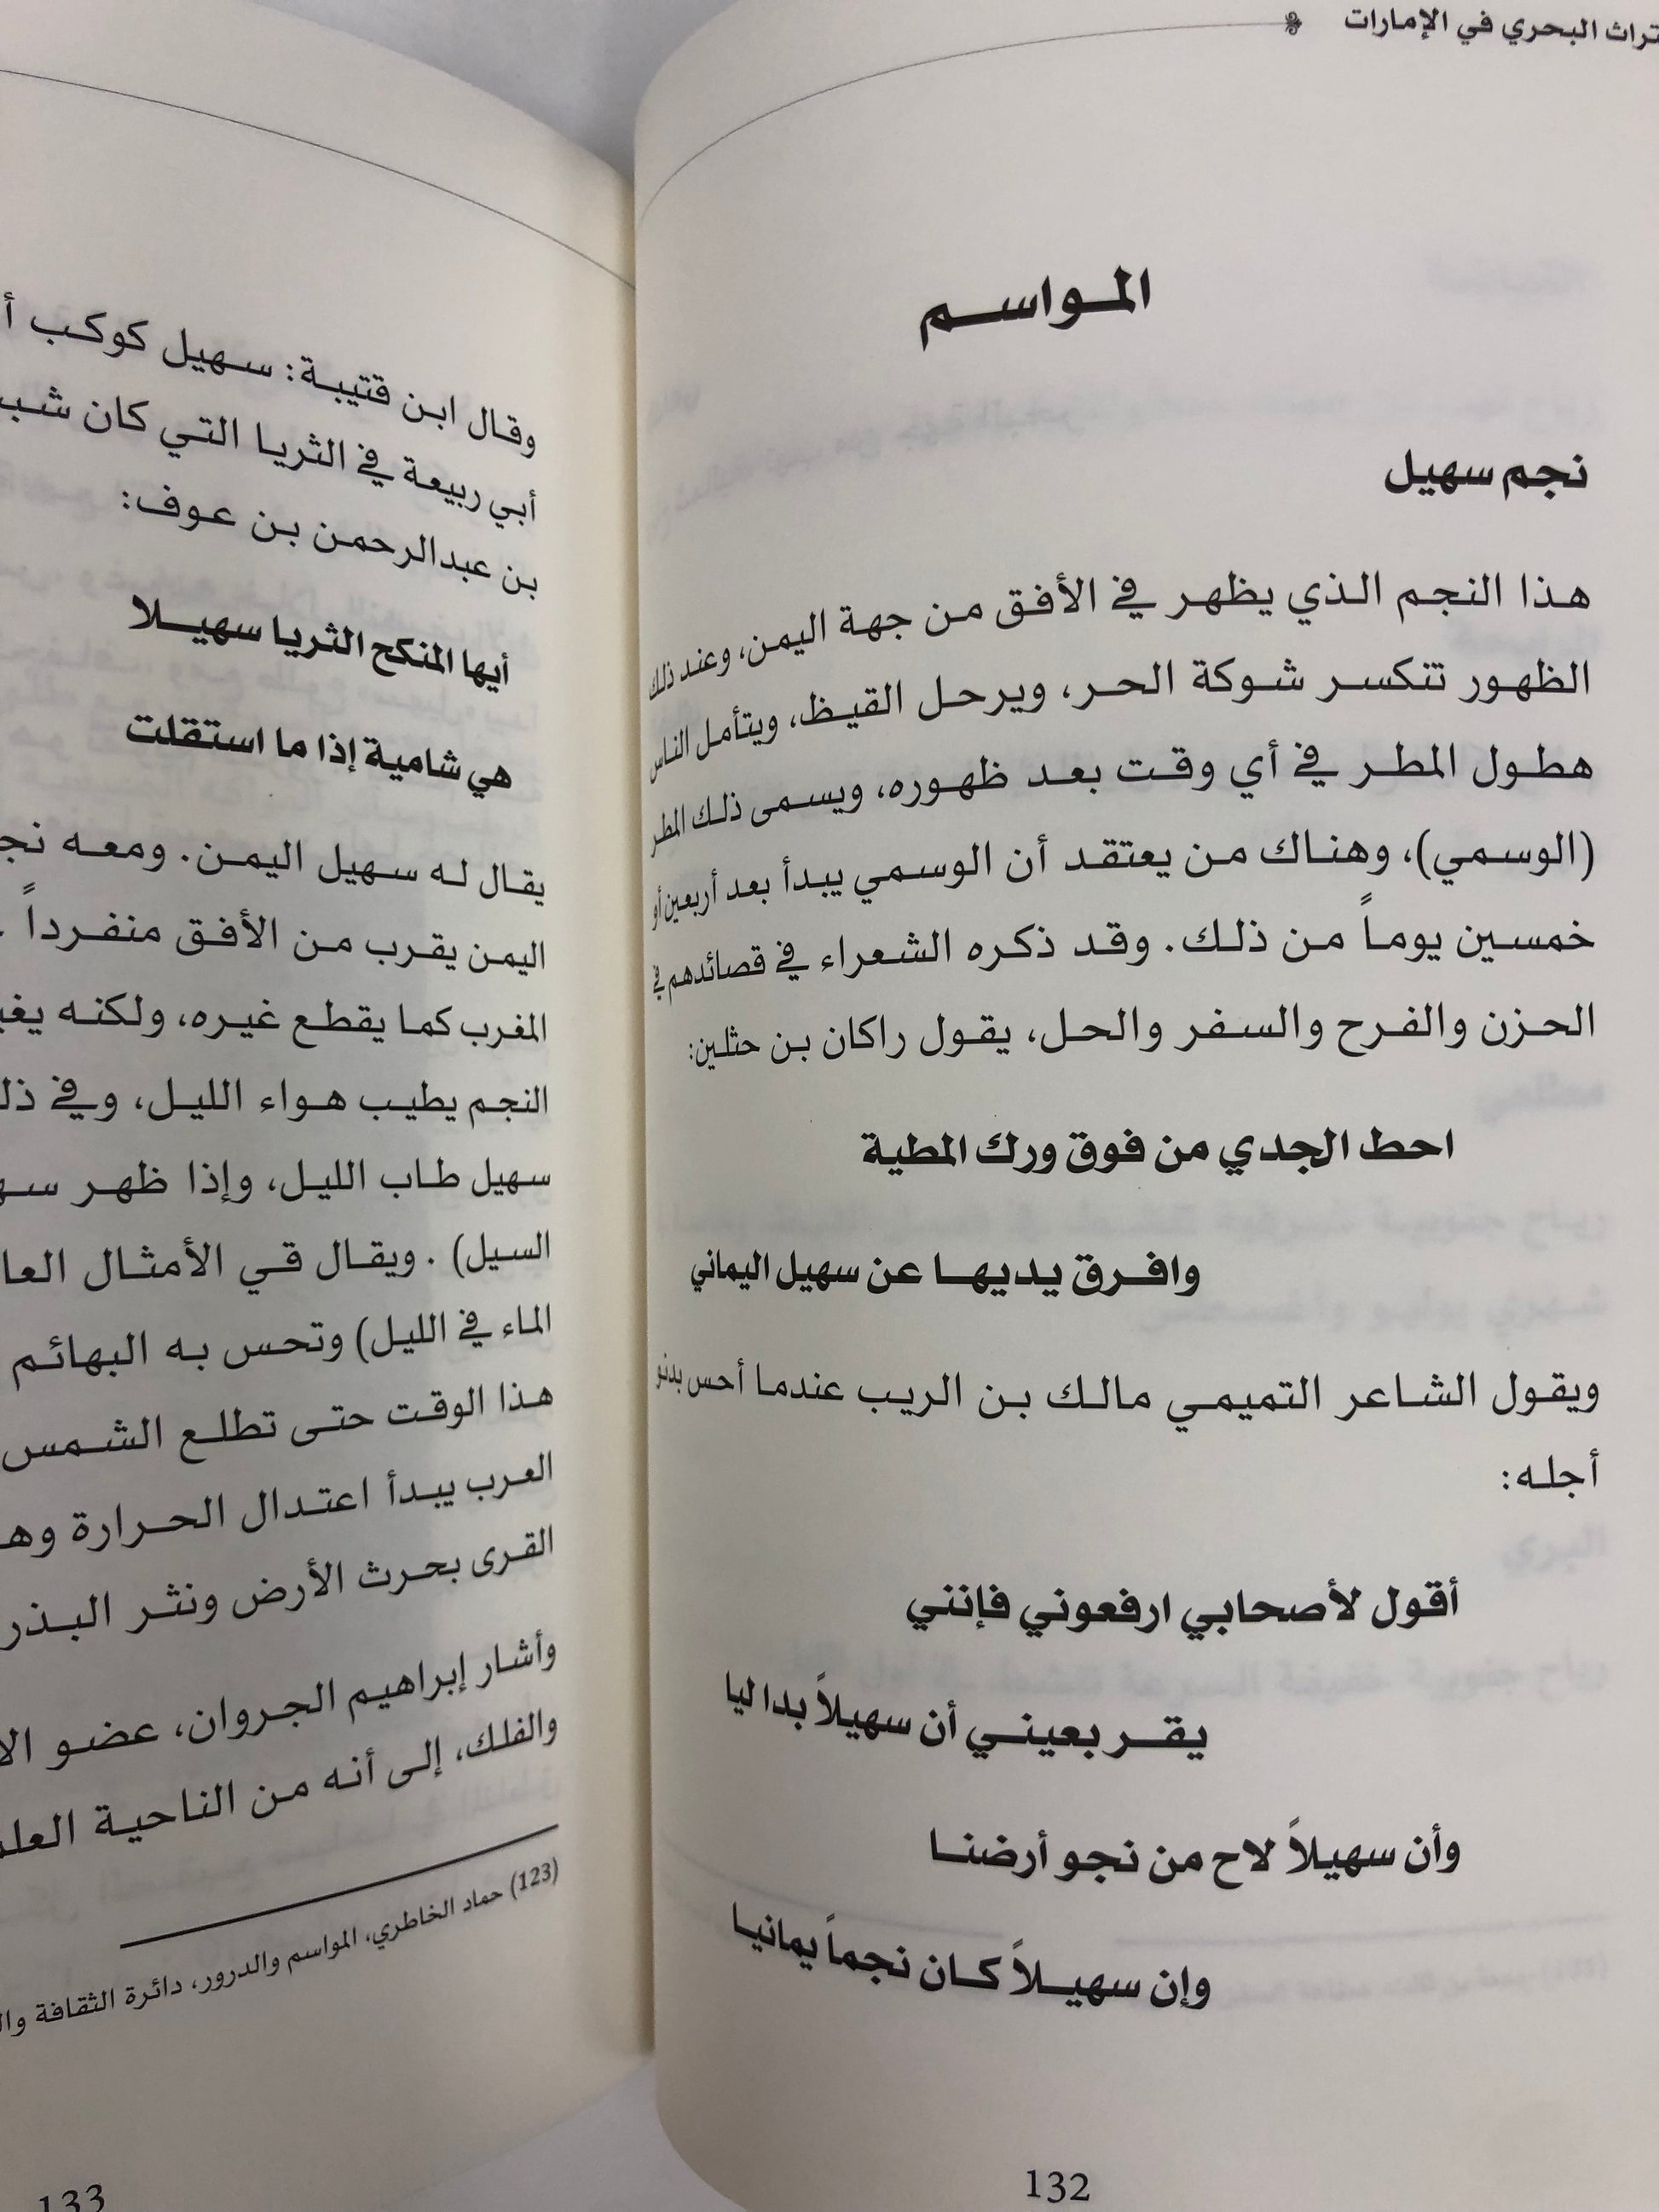 تراث البحري في الإمارات
المواسم
نجم سهيل
هذا النجم الذي يظهر في الأفق من جهة اليمن، وعند ذلك
الظهور تنكسر شوكة الحر، ويرحل القيظ، ويتأمل الناس
هطول المطر في أي وقت بعد ظهوره، ويسمى ذلك المطر
(الوسمي)، وهناك من يعتقد أن الوسمي يبدأ بعد أربعين أو
خمسين يوماً من ذلك. وقد ذكره الشعراء في قصائدهم في
الحزن والفرح والسفر والحل، يقول راكان بن حثلين:
احط الجدي من فوق ورك المطية
وافرق يديها عن سهيل اليماني
ويقول الشاعر التميمي مالك بن الريب عندما أحس بدنو
أجله:
أقول لأصحابي ارفعوني فإنني
يقر بعيني أن سهيلاً بدا ليا
وأن سهيلاً لاح من نجو أرضنا
وإن سهيلاً كان نجماً يمانيا
132
وقال ابن قتيبة: سهيل كوكب أ
أبي ربيعة في الثريا التي كان شب
بن عبدالرحمن بن عوف:
أيها المنكح الثريا سهيلا
هي شامية إذا ما استقلت
يقال له سهيل اليمن. ومعه نج
اليمن يقرب من الأفق منفرداً
المغرب كما يقطع غيره، ولكنه يغي
النجم يطيب هواء الليل، وفي ذل
سهيل طاب الليل، وإذا ظهر سه
السيل). ويقال قي الأمثال العا
الماء في الليل) وتحس به البهائم
هذا الوقت حتى تطلع الشمس
العرب يبدأ اعتدال الحرارة وه
القرى بحرث الأرض ونثر البذر
وأشار إبراهيم الجروان، عضو الا
والفلك، إلى أنه من الناحية العلم
(123) حماد الخاطري، المواسم والدرور، دائرة الثقافة وال
133